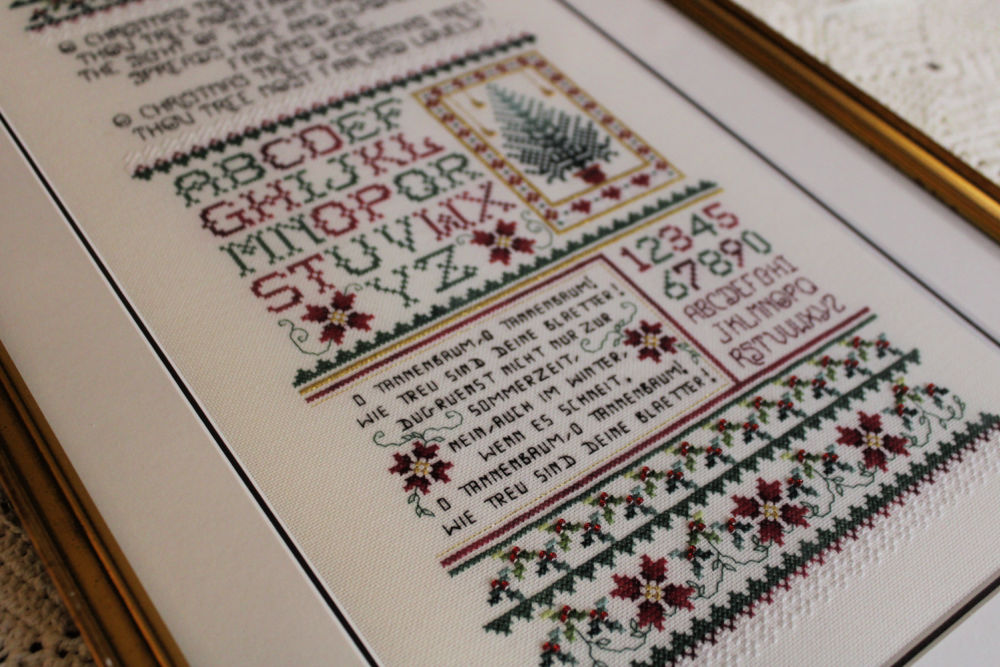 O CHRISTMAS
THOU TREE
THE SIGHT OF THEE
SPREADS HOPE AND
O CHRISTMAS TREE, O CHRISTMAS TREE!
THOU TREE MOST FAIR AND LOVELY!
ABCDEF
GHIJKL
MNOPQR
STUVWX
YZ
12345
67890
ABCDEFGHI
JKLMNOPQ
RSTUVWXYZ
O TANNENBAUM, O TANNENBAUM!
WIE TREU SIND DEINE BLAETTER!
DU GRUENST NICHT NUR ZUR
SOMMERZEIT,
NEIN, AUCH IM WINTER,
WENN ES SCHNEIT.
O TANNENBAUM, O TANNENBAUM!
WIE TREU SIND DEINE BLAETTER!